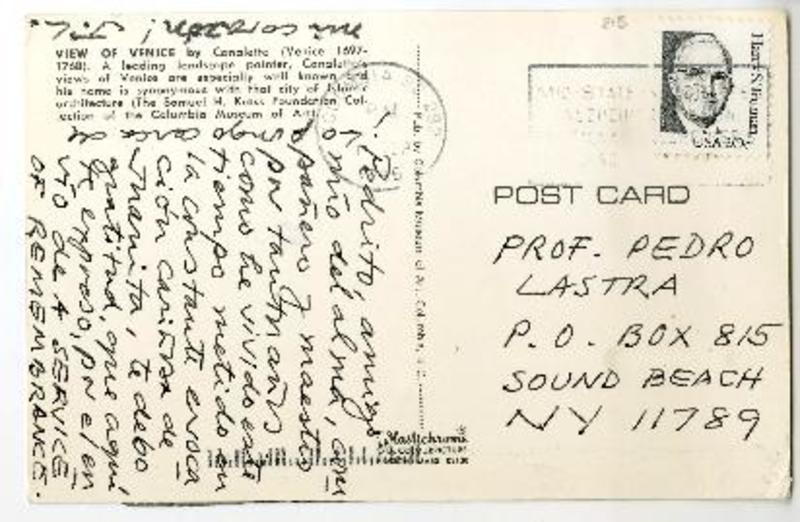 VIEW OF VENICE by Canaletto (Venice 1697-
1768). A leading landscape painter, Canaletto's
views of Venice are especially well known and
his name is synonymous with that city of Islamic
architecture (The Samuel H. Kress Foundation Col-
lection of the Columbia Museum of Art).
¡Pedrito, amigo
mío del alma, com
pañero y maestro
por tantos años
como he vivido este
tiempo metido en
la constante evoca
ción cariñosa de
Juanita, te debo
gratitud, que aquí
te expreso, por el en
vío de A SERVICE
OF REMEMBRANCE.
arca de
mi corazón!
Pub. by Columbia Museum of Art, Columbia, S. C.
Plastichrome
815
Harry S. Truman
USA 20c
POST CARD
PROF. PEDRO
LASTRA
P.O. BOX 815
SOUND BEACH
NY 11789